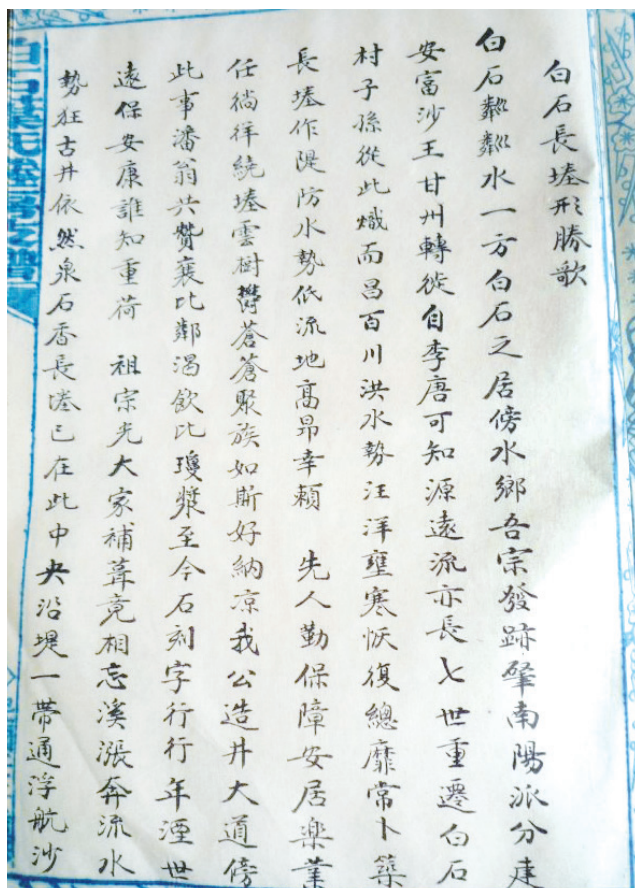 白石長墶形勝歌
白石粼粼水一方白石之居傍水鄉吾宗發跡肇南陽派分建
安富沙王甘州轉徙自李唐可知源遠流亦長七世重遷白石
村子孫從此熾而昌百川洪水勢汪洋壅寒恢復總靡常卜築
長墶作隄防水勢低流地高昂幸賴 先人勤保障安居樂業
任徜徉繞墶雲樹鬱蒼蒼聚族如斯好納凉我公造井大道傍
此事潘翁共贊襄比鄰渴飲比瓊漿至今石刻字行行年湮世
遠保安康誰知重荷 祖宗光大家補葺竟相忘溪漲奔流水
勢狂古井依然泉石香長墶已在此中央沿堤一帶通浮航沙